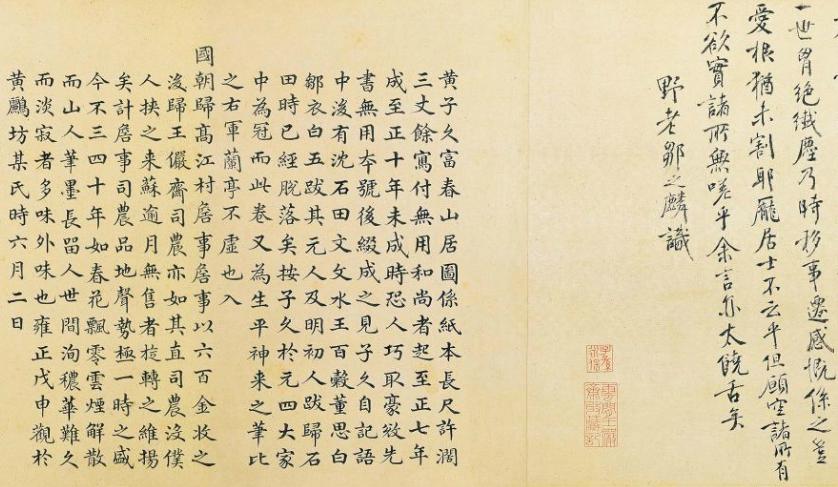 世胄絕纖塵乃時移事遷感慨係之豈
愛根猶未割耶龐居士不云乎但願空諸所有
不欲實諸所無嗟乎余言亦太饒舌矣
野老鄒之麟識
黃子久富春山居圖係紙本長尺許濶
三丈餘寫付無用和尚者起至正七年
成至正十年未成時恐人巧取豪敓先
書無用夲號後綴成之見子久自記語
中後有沈石田文文水王百穀董思白
鄒衣白五跋其元人及明初人跋歸石
田時已經脫落矣按子久於元四大家
中為冠而此卷又為生平神来之筆比
之右軍蘭亭不虛也入
國朝歸髙江村詹事詹事以六百金收之
後歸王儼齋司農亦如其直司農沒僕
人挾之来蘇逾月無售者旋轉之維揚
矣計詹事司農品地聲勢極一時之盛
今不三四十年如春花飄零雲煙解散
而山人筆墨長留人世間洵穠華難久
而淡寂者多味外味也雍正戊申觀於
黃鸝坊某氏時六月二日